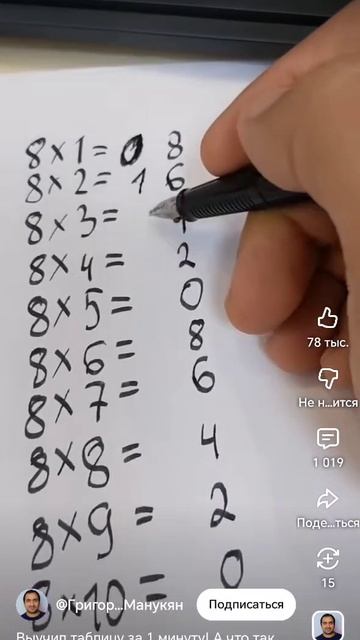 8×1= 0 8
8×2= 1 6
8×3=
8×4= 2
8×5= 0
8×6= 8
8×7= 6
8×8= 4
8×9= 2
8×10= 0
78 тыс.
Не н...ится
1 019
Поде...ться
15
@Григор...Манукян
Подписаться
Выучил таблицу за 1 минуту! А что так